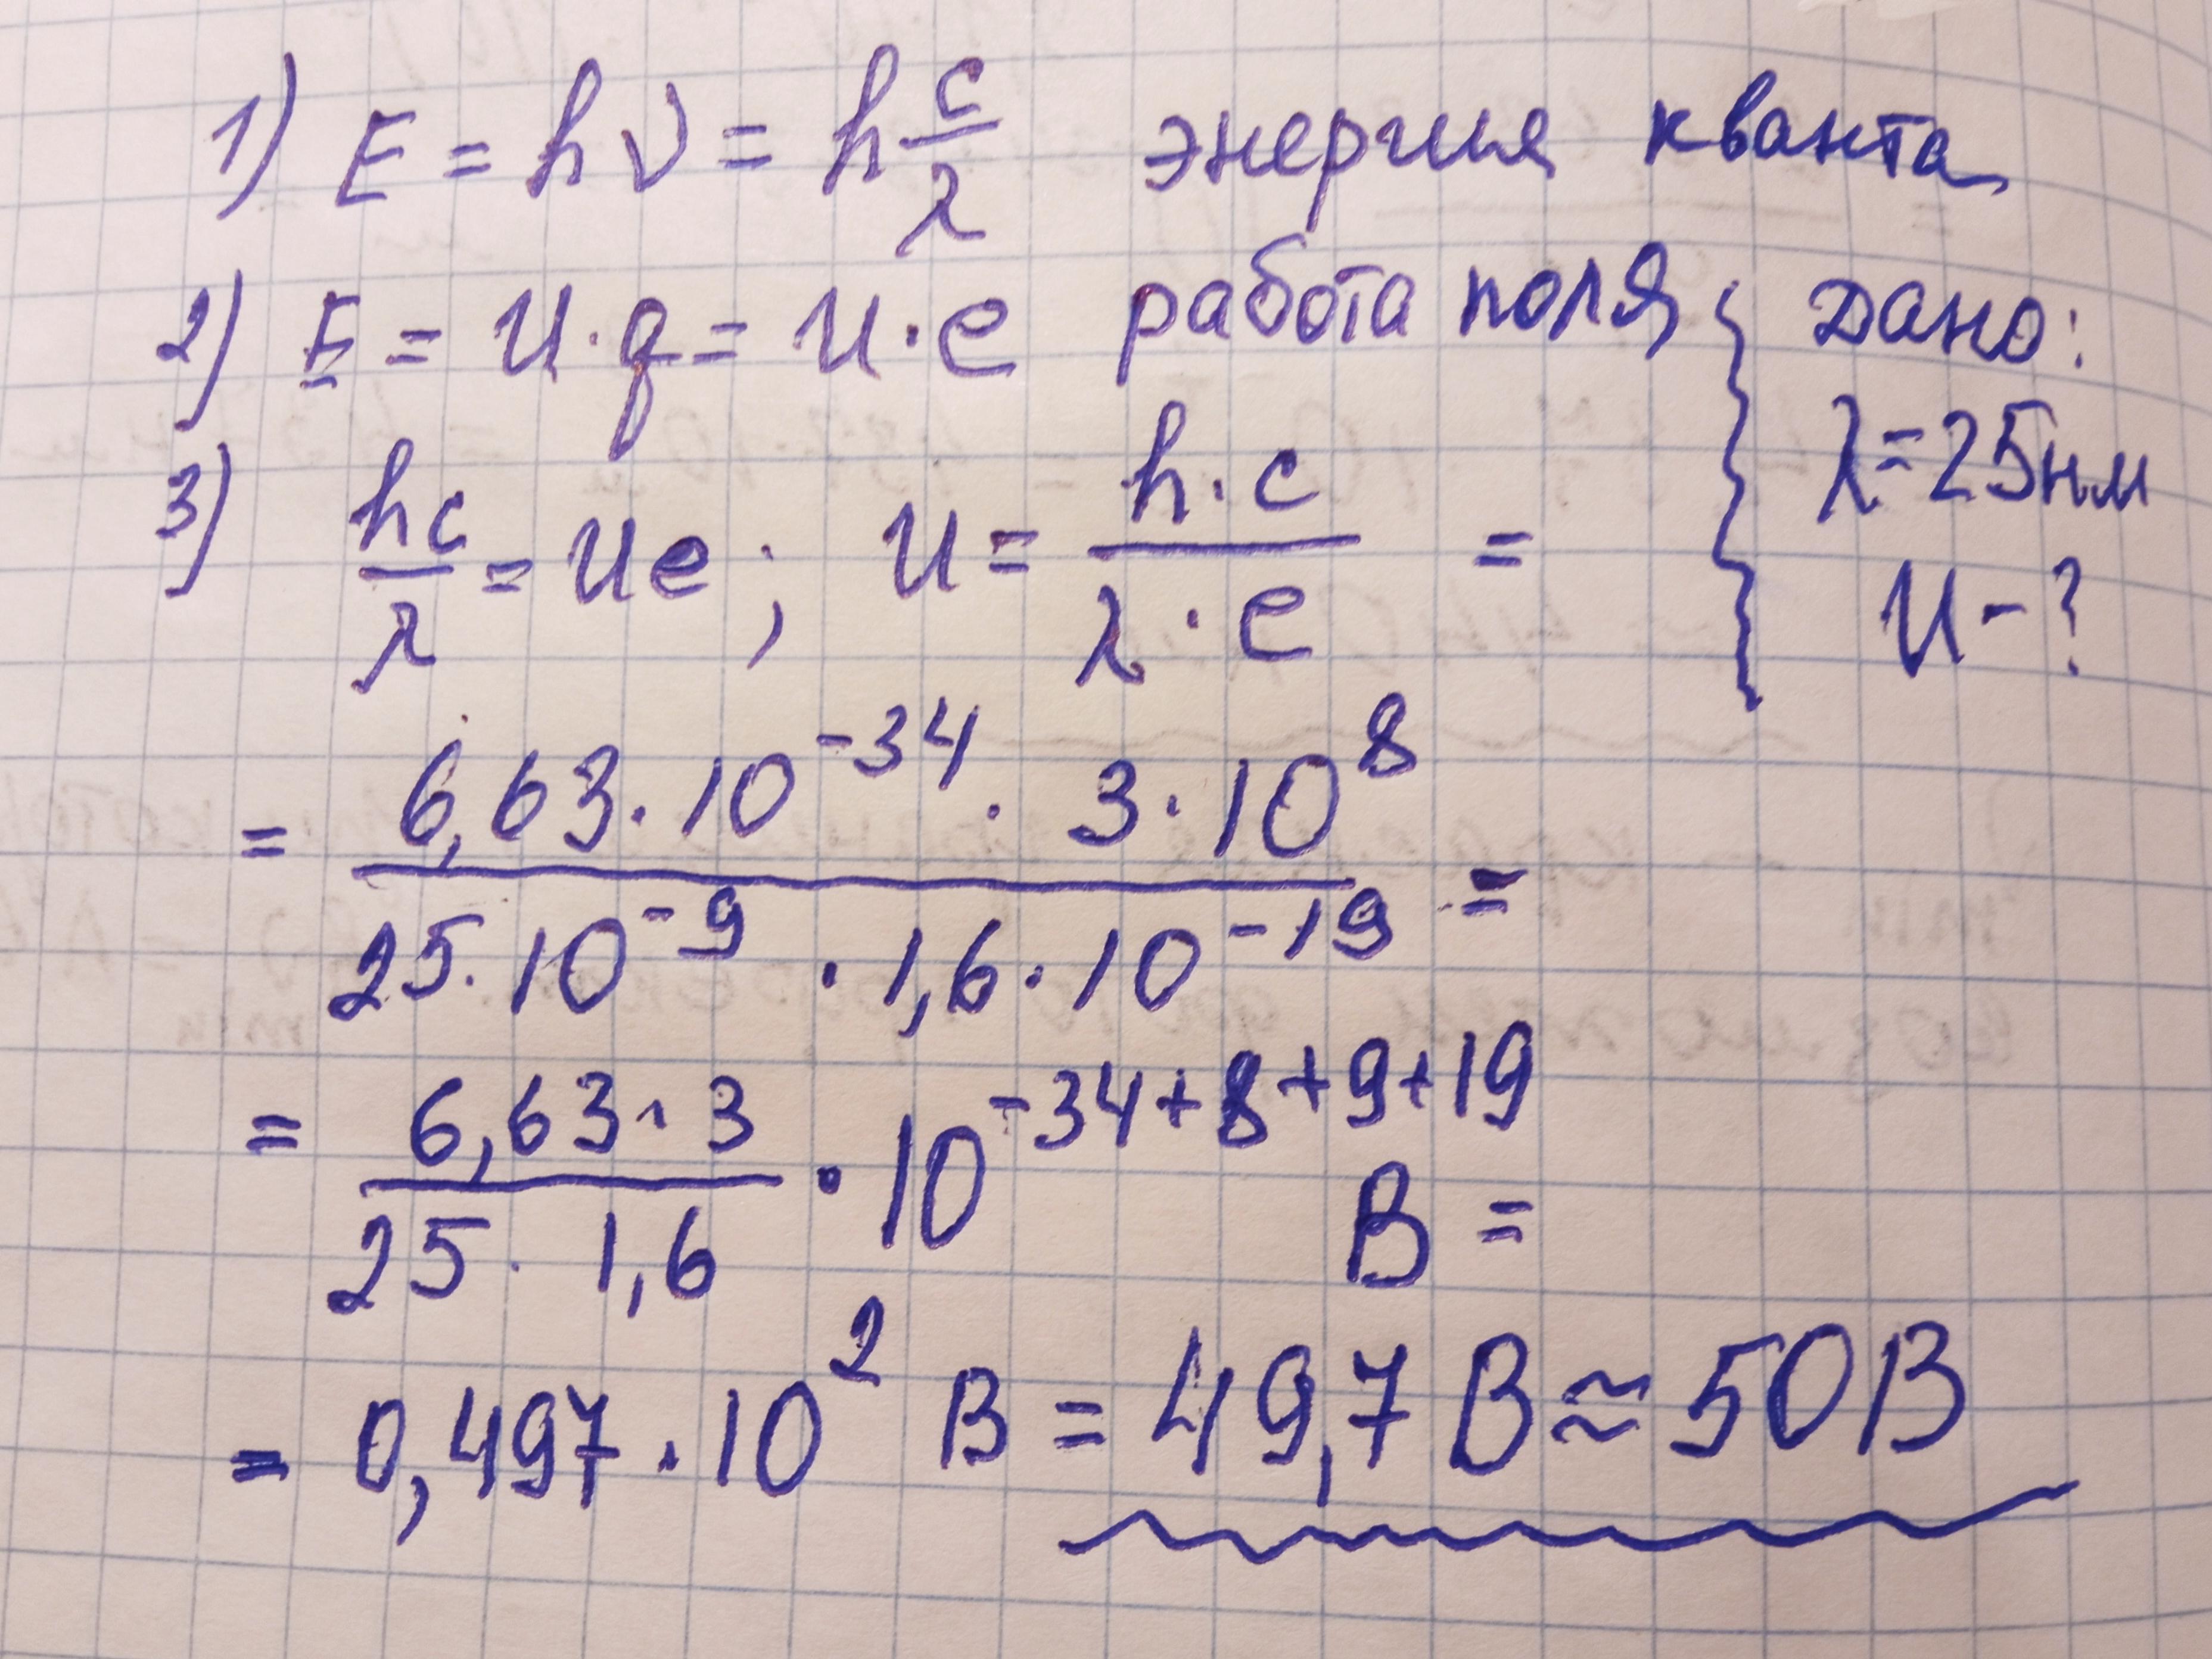 1) E = hν = h c/λ энергия кванта
2) E = U · q = U · e работа поля
Дано:
λ = 25нм
U - ?
3) hc/λ = Ue ; U = h · c / λ · e =
= 6,63 · 10⁻³⁴ · 3 · 10⁸ / 25 · 10⁻⁹ · 1,6 · 10⁻¹⁹ =
= 6,63 · 3 / 25 · 1,6 · 10⁻³⁴⁺⁸⁺⁹⁺¹⁹ В =
= 0,497 · 10² В = 49,7 В ≈ 50В